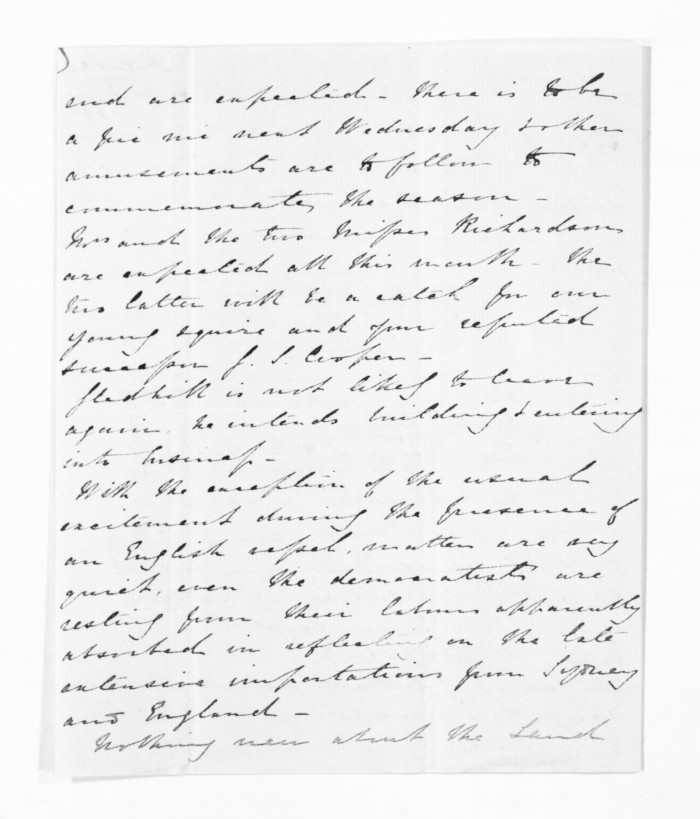 end are expected - There is to be
a pic nic next Wednesday & other
amusements are to follow to
commemorate the season -
Mrs and the two Misses Richardson
are expected all this month - The
two latter will be a catch for our
young squire and your reputed
successor J. S. Cooper -
Gledhill is not likely to leave
again, he intends building & entering
into business -
With the exception of the usual
excitement during the presence of
an English vessel, matters are very
quiet, even the democratists are
resting from their labours apparently
absorbed in reflecting on the late
extensive importations from Sydney
and England -
Nothing new about the Land